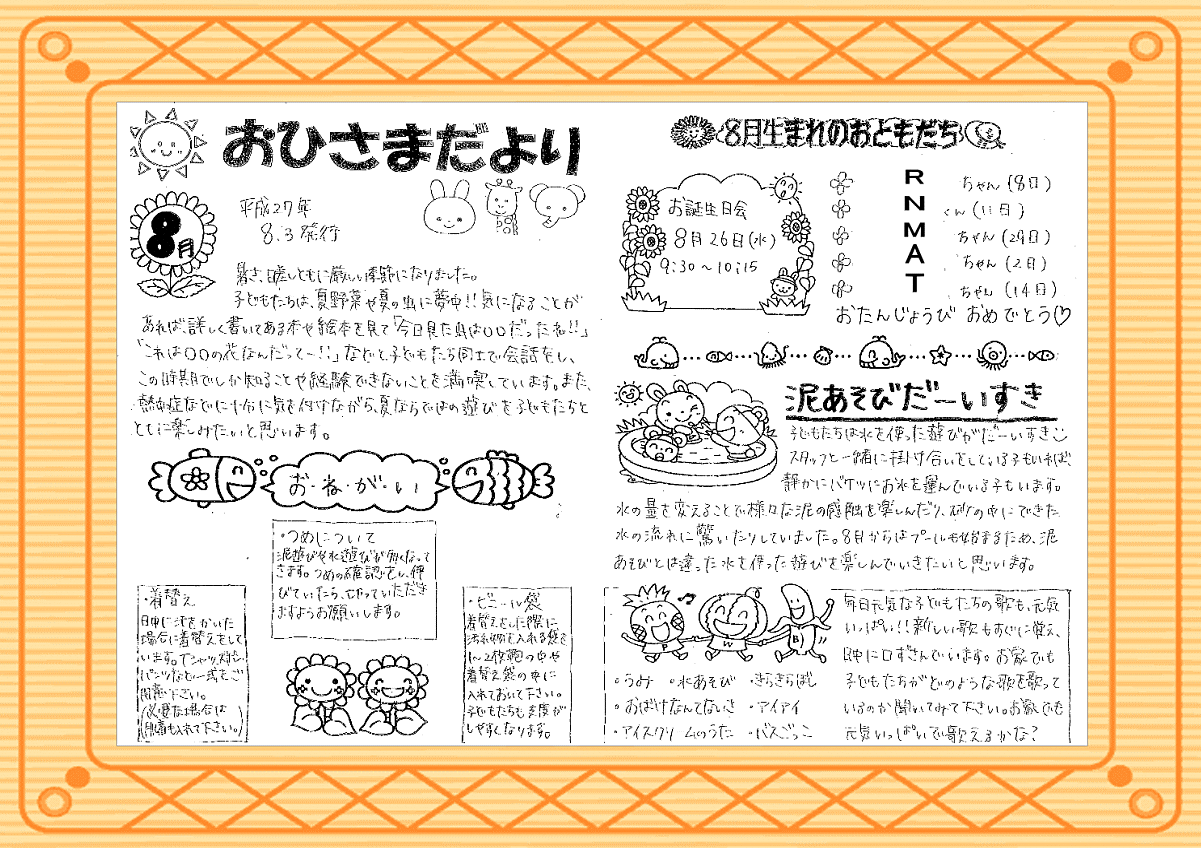 おひさまだより
8月
平成27年
8.3発行
暑さ、日差しともに厳しい季節になりました。
子どもたちは、夏野菜や夏の虫に夢中!!気になることが
あれば、詳しく書いてある本や絵本を見て「今日見た鳥は〇〇だったね!!」
「これは〇〇の花なんだってー!!」などと子どもたち同士で会話をし、
この時期でしか知ることや経験できないことを満喫しています。また、
熱中症などに十分に気を付けながら、夏ならではの遊びを子どもたちと
ともに楽しみたいと思います。
お・ね・が・い
・つめについて
泥遊びや水遊びが多くなって
きます。つめの確認をし、伸
びていたら、切っていただき
ますようお願いします。
・着替え
日中に汗をかいた
場合に着替えをして
います。Tシャツ、
パンツなど一式をご
用意下さい。
(必要な場合は
も入れて下さい。)
・ビニール袋
着替えをした際に
汚れ物を入れる袋を
1〜2枚鞄の中や
着替え袋の中に
入れておいて下さい。
子どもたちも支度が
しやすくなります。
8月生まれのおともだち
お誕生日会
8月26日(水)
9:30〜10:15
R ちゃん(8日)
N くん(11日)
M ちゃん(29日)
A ちゃん(2日)
T ちゃん(14日)
おたんじょうび おめでとう♡
泥あそびだーいすき
子どもたちは水を使った遊びがだーいすき
スタッフと一緒に掛け合いをしている子もいれば、
静かにバケツにお水を運んでいる子もいます。
水の量を変えることで様々な泥の感触を楽しんだり、砂の中にできた
水の流れに驚いたりしていました。8月からはプールも始まるため、泥
あそびとは違った水を使った遊びを楽しんでいきたいと思います。
P W B
・うみ ・水あそび ・きらきらぼし
・おばけなんてないさ ・アイアイ
・アイスクリームのうた ・バスごっこ
毎日元気な子どもたちの歌も、元気
いっぱい!!新しい歌もすぐに覚え、
日中に口ずさんでいます。お家でも
子どもたちがどのような歌を歌って
いるのか聞いてみて下さい。お家でも
元気いっぱいで歌えるかな?